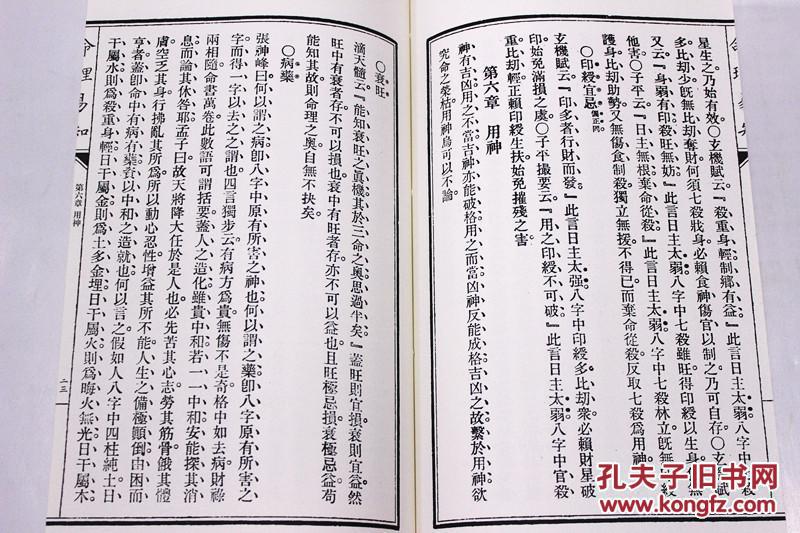 命理易知
星生之乃始有效〇玄機賦云『殺重身輕制鄉有益』此言日主太弱八字中七殺
多比劫少旣無比劫奪財何須七殺戕身必賴食神傷官以制之乃可自存〇玄機賦
又云『身弱有印殺旺無妨』此言日主太弱八字中七殺雖旺得印綬以生身無
他害〇子平云『日主無根棄命從殺』此言日主太弱八字中七殺林立旣無
護身比劫助勢又無傷食制殺獨立無援不得已而棄命從殺反取七殺爲用神
〇印綬宜忌偏正同
玄機賦云『印多者行財而發』此言日主太强八字中印綬多比劫衆必賴財星破
印始免滿損之虞〇子平撮要云『用之印綬不可破』此言日主太弱八字中官殺
重比劫輕正賴印綬生扶始免摧殘之害
第六章 用神
神有吉凶用之不當吉神亦能破格用之而當凶神反能成格吉凶之故繫於用神欲
究命之榮枯用神烏可以不論
〇衰旺
滴天髓云『能知衰旺之眞機其於三命之奧思過半矣』蓋旺則宜損衰則宜益然
旺中有衰者存不可以損也衰中有旺者存亦不可以益也且旺極忌損衰極忌益苟
能知其故則命理之奧自無不抉矣
〇病藥
張神峰曰何以謂之病卽八字中原有所害之神也何以謂之藥卽八字原有所害之
字而得一字以去之之謂也四言獨步云有病方爲貴無傷不是奇格中如去病財祿
兩相隨命書萬卷此數語可謂括要蓋人之造化雖貴中和若一一中和安能探其消
息而論其休咎耶孟子曰故天將降大任於是人也必先苦其心志勞其筋骨餓其體
膚空乏其身行拂亂其所爲所以動心忍性增益其所不能人生之備極顚倒由困而
亨者蓋卽命中有病有藥賁以中和之造就也何以言之假如人八字中四柱純土日
干屬水則爲殺重身輕日干屬金則爲土多金埋日干屬火則爲晦火無光日干屬木
命理易知
第六章 用神
二三
孔夫子旧书网
KONGFZ.COM